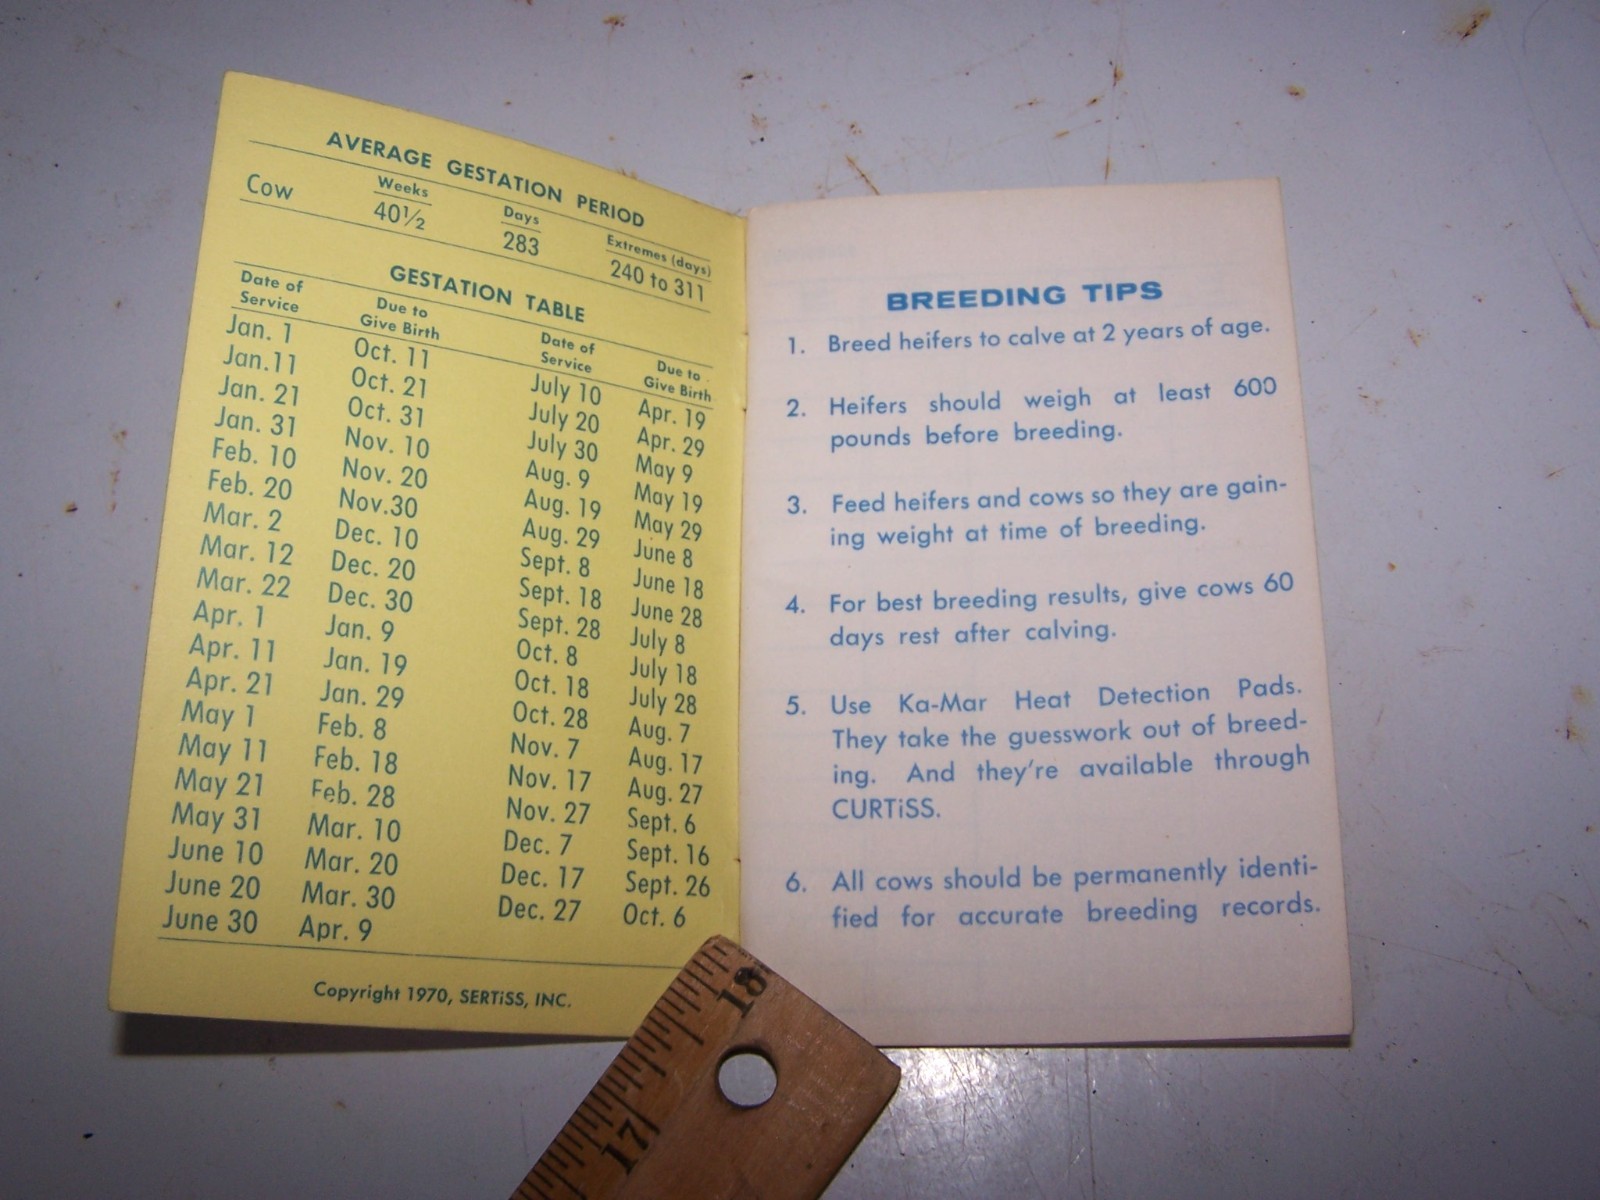 AVERAGE GESTATION PERIOD
Weeks Days Extremes (days)
Cow 40½ 283 240 to 311
GESTATION TABLE
Date of Service Due to Give Birth Date of Service Due to Give Birth
Jan. 1 Oct. 11 July 10 Apr. 19
Jan.11 Oct. 21 July 20 Apr. 29
Jan. 21 Oct. 31 July 30 May 9
Jan. 31 Nov. 10 Aug. 9 May 19
Feb. 10 Nov. 20 Aug. 19 May 29
Feb. 20 Nov.30 Aug. 29 June 8
Mar. 2 Dec. 10 Sept. 8 June 18
Mar. 12 Dec. 20 Sept. 18 June 28
Mar. 22 Dec. 30 Sept. 28 July 8
Apr. 1 Jan. 9 Oct. 8 July 18
Apr. 11 Jan. 19 Oct. 18 July 28
Apr. 21 Jan. 29 Oct. 28 Aug. 7
May 1 Feb. 8 Nov. 7 Aug. 17
May 11 Feb. 18 Nov. 17 Aug. 27
May 21 Feb. 28 Nov. 27 Sept. 6
May 31 Mar. 10 Dec. 7 Sept. 16
June 10 Mar. 20 Dec. 17 Sept. 26
June 20 Mar. 30 Dec. 27 Oct. 6
June 30 Apr. 9
Copyright 1970, SERTiSS, INC.
BREEDING TIPS
1. Breed heifers to calve at 2 years of age.
2. Heifers should weigh at least 600
pounds before breeding.
3. Feed heifers and cows so they are gain-
ing weight at time of breeding.
4. For best breeding results, give cows 60
days rest after calving.
5. Use Ka-Mar Heat Detection Pads.
They take the guesswork out of breed-
ing. And they're available through
CURTiSS.
6. All cows should be permanently identi-
fied for accurate breeding records.
18
17